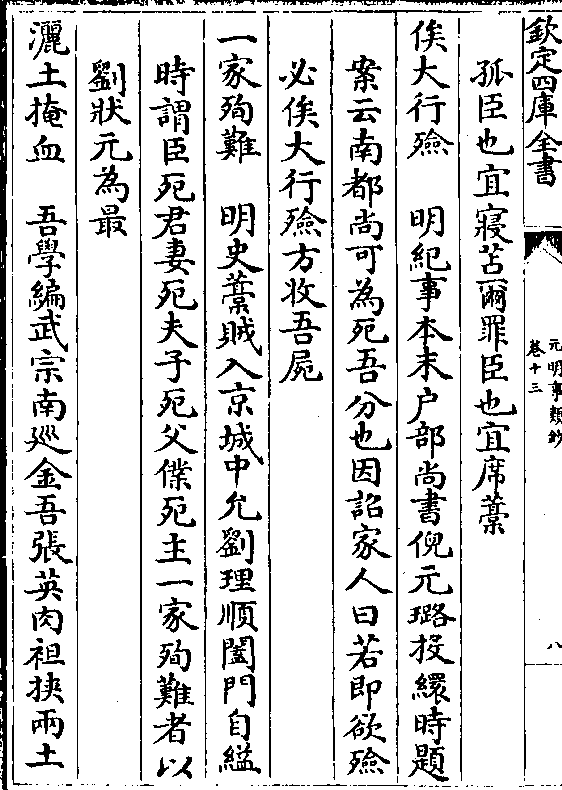 欽定四庫全書
元明事類鈔
卷十三
八
孤臣也宜寢苫爾罪臣也宜席藁
俟大行殮　明紀事本末户部尚書倪元璐投繯時題
案云南都尚可為死吾分也因詔家人曰若即欲殮
必俟大行殮方收吾屍
一家殉難　明史藁賊入京城中允劉理順闔門自縊
時謂臣死君妻死夫子死父僕死主一家殉難者以
劉狀元為最
灑土掩血　吾學編武宗南廵金吾張英肉袒挾兩土